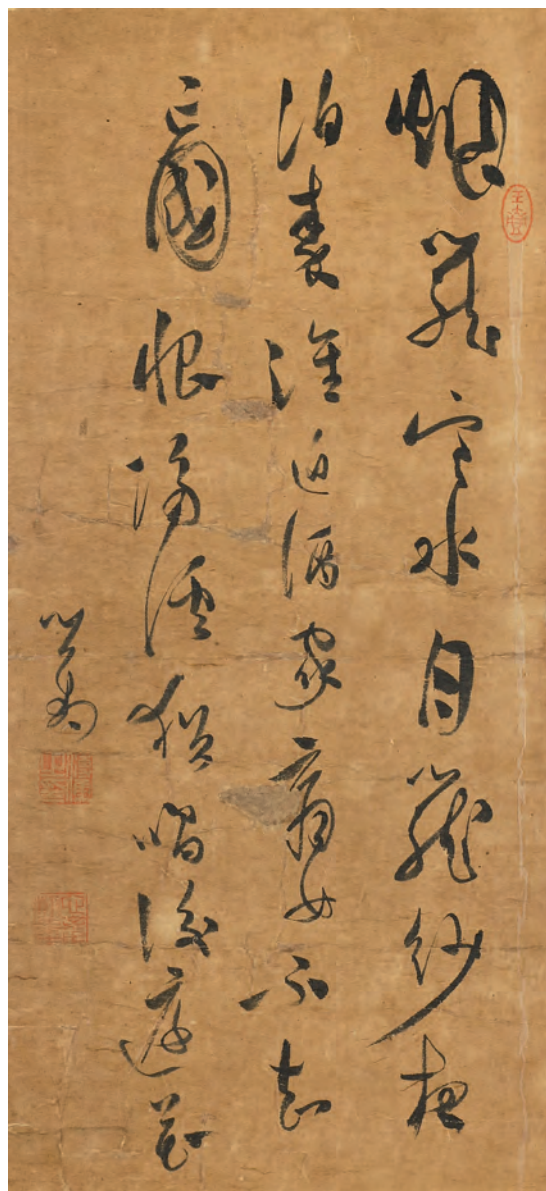 烟籠寒水月籠紗夜
泊秦淮近酒家商女不知
亡國恨隔猶唱後庭花